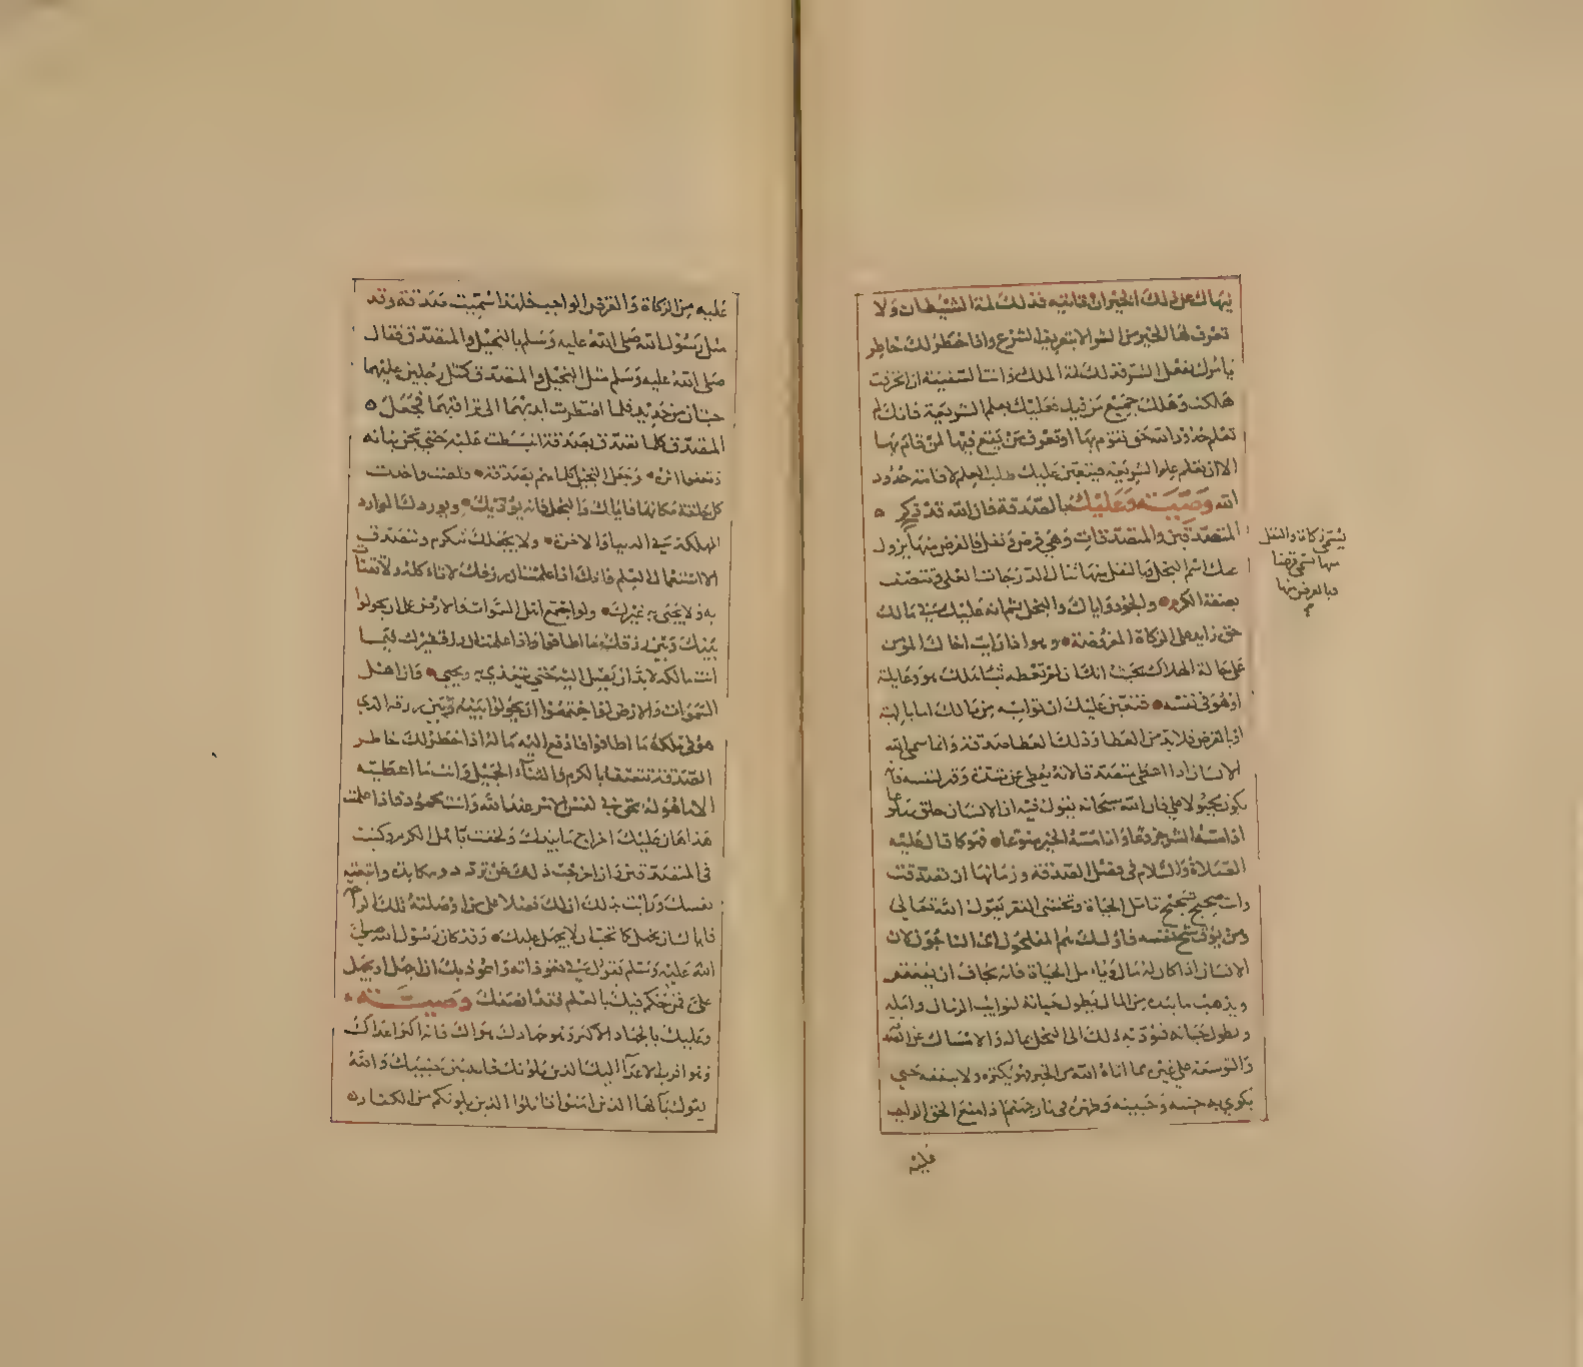 ينهاك عن ذلك الخير ان تاتيه فذلك لمة الشيطان ولا
تعرف هذا الخير من الشر الا بتعريف الشرع واذا خطر لك خاطر
يامرك بفعل الشر فذلك لمة الملك ذات السفينة ان خرقت
هلكت وهلك جميع من فيها فعليك بعلم الشريعة فانك لم
تعلم حدود الله حتى تقوم بها او تعرف من يقع فيها لمن قام بها
الا ان تعلم علم الشريعة فيتعين عليك طلب العلم لاقامة حدود
الله وصية وعليك بالصدقة فان الله قد ذكر
المتصدقين والمتصدقات وهي فرض ونفل فالفرض منها يزول
عنك اسم البخل وبالنفل منها تنال الدرجات العلى وتتصف
بصفة الكرم والجود واياك والبخل ثم انه عليك في مالك
حق زايد على الزكاة المفروضة وهو اذا رايت اخاك المومن
على حالة الهلاك بحيث انك ان لم تعطه شيا هلك هو وعايلته
او هو في نفسه فتعين عليك ان تواسيه من مالك اما بالهبة
او بالقرض فلا بد من العطا وذلك العطا صدقة وانما سمي الله
الانسان اذا اعطى متصدقا لانه يعطي عن شدة وقهر لنفسه فانه
يكون مجبولا على فان الله سبحانه يقول فيه ان الانسان خلق هلوعا
اذا مسه الشر جزوعا واذا مسه الخير منوعا فهو كما قال عليه
الصلاة والسلام في فضل الصدقة وزمانها ان تصدقت
وانت صحيح شحيح تامل الحياة وتخشى الفقر يقول الله تعالى
ومن يوق شح نفسه فاوليك هم المفلحون اي الناجون كان
الانسان اذا كان له مال ويامل الحياة فانه يخاف ان يفتقر
ويذهب ما بيده من المال بطول حياته لنوايب الزمان وامله
وبطول حياته فيؤديه ذلك الى البخل بماله والامساك عن الصدقة
والتوسعة على غيره مما اتاه الله من الخير فهو يكنزه ولا ينفقه حتى
يكوي به جنبه وجبينه وظهره في نار جهنم اذا منع الحق الواجب
عليه
يسمى زكاة والنفل
منها تسمى قرضا
وبالفرض منها
عليه من الزكاة والقرض الواجب فلهذا سميت صدقة وقد
مثل رسول الله صلى الله عليه وسلم بالبخيل والمتصدق فقال
صلى الله عليه وسلم مثل البخيل والمتصدق كمثل رجلين عليهما
جنتان من حديد فلما اضطرت ايديهما الى تراقيهما فجعل
المتصدق كلما تصدق بصدقة انبسطت عليه حتى تجن بنانه
وتعفوا اثره وجعل البخيل كلما هم بصدقة قلصت واخذت
كل حلقة مكانها فاياك والبخل فانه يؤذيك ويوردك الموارد
المهلكة في الدنيا والاخرة ولا يجعلك تتكرم وتتصدق
الا استعمال العلم فانك اذا علمت ان رزقك لا ياكله ولا تقتات
به ولا يحيى به غيرك ولو اجتمع اهل السموات والارض على ان يحولوا
بينك وبين رزقك ما اطاقوا واذا علمت ان رزق غيرك فيما
انت مالكه لا بد ان يصل اليه حتى يتغذى به ويحيى فان اهل
السموات والارض لو اجتمعوا ان يحولوا بينه وبين رزقه الذي
هو في ملكك ما اطاقوا فادفع اليه ماله اذا خطر لك خاطر
الصدقة تتصف بالكرم والثناء الجميل وانت ما اعطيته
الا ما هو له بحق في نفس الامر عند الله وانت محمود فاذا علمت
هذا هان عليك اخراج ما بيدك ولحقت باهل الكرم وكتبت
في المتصدقين وان اخرجت ذلك عن تردد ومكابدة واتبعته
نفسك ورايت بذلك ان لك فضلا على من اوصلته تلك الراحة
فاياك ان تجهل كما تحب ان لا يجهل عليك وقد كان رسول الله صلى
الله عليه وسلم يقول في تعوذاته واعوذ بك ان اجهل او يجهل
علي فمن حكم فيك بالعلم فقد انصفك وصية
وعليك بالجهاد الاكبر وهو جهادك هواك فانه اكبر اعدائك
وهو اقرب الاعداء اليك الذين يلونك فانه بين جنبيك والله
يقول يا ايها الذين امنوا قاتلوا الذين يلونكم من الكفار